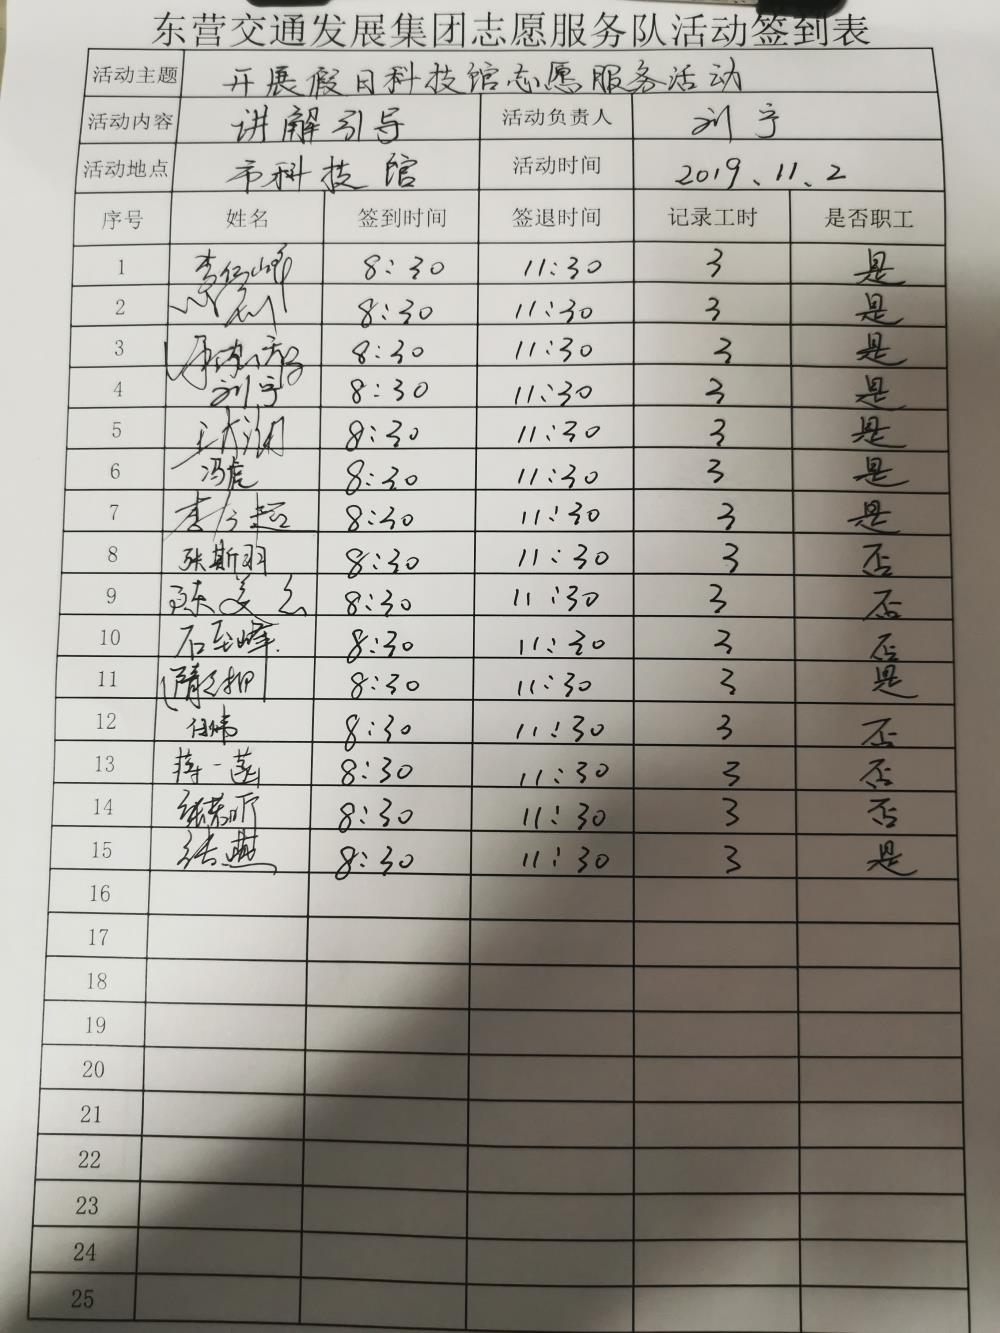 东营交通发展集团志愿服务队活动签到表
活动主题 开展假日科技馆志愿服务活动
活动内容 讲解引导 活动负责人 刘宁
活动地点 市科技馆 活动时间 2019.11.2
序号 姓名 签到时间 签退时间 记录工时 是否职工
1 8:30 11:30 3 是
2 8:30 11:30 3 是
3 8:30 11:30 3 是
4 刘宁 8:30 11:30 3 是
5 8:30 11:30 3 是
6 冯虎 8:30 11:30 3 是
7 8:30 11:30 3 是
8 张斯羽 8:30 11:30 3 否
9 8:30 11:30 3 否
10 8:30 11:30 3 否
11 8:30 11:30 3 是
12 任炜 8:30 11:30 3 否
13 蒋一菡 8:30 11:30 3 否
14 8:30 11:30 3 否
15 张燕 8:30 11:30 3 是
16
17
18
19
20
21
22
23
24
25